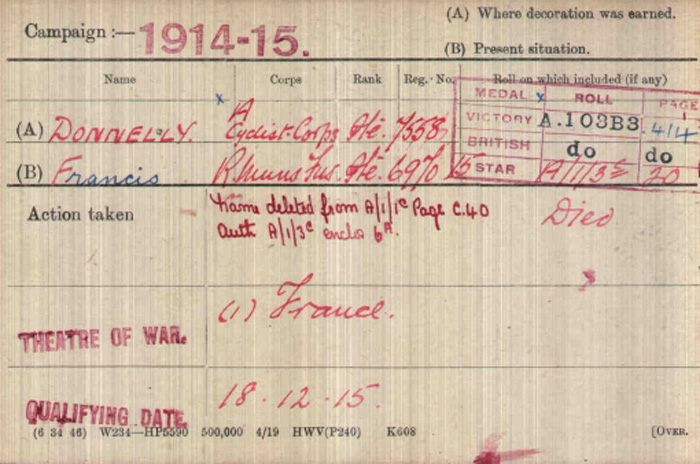 (A) Where decoration was earned.
Campaign :— 1914-15.
(B) Present situation.
Name Corps Rank Reg. No. Roll on which included (if any)
MEDAL x ROLL PAGE
x A
(A) DONNELLY. Cyclist Corps Pte. 7558 VICTORY A.103B3 414
BRITISH do do
(B) Francis R. Muns Fus. Pte. 6970 15 STAR A/1/3c 20
Action taken Name deleted from A/1/1c Page C.40 Died
auth A/1/3c enclo 6A.
THEATRE OF WAR. (1) France.
QUALIFYING DATE 18.12.15.
(6 34 46) W234—HP5590 500,000 4/19 HWV(P240) K608 [OVER.